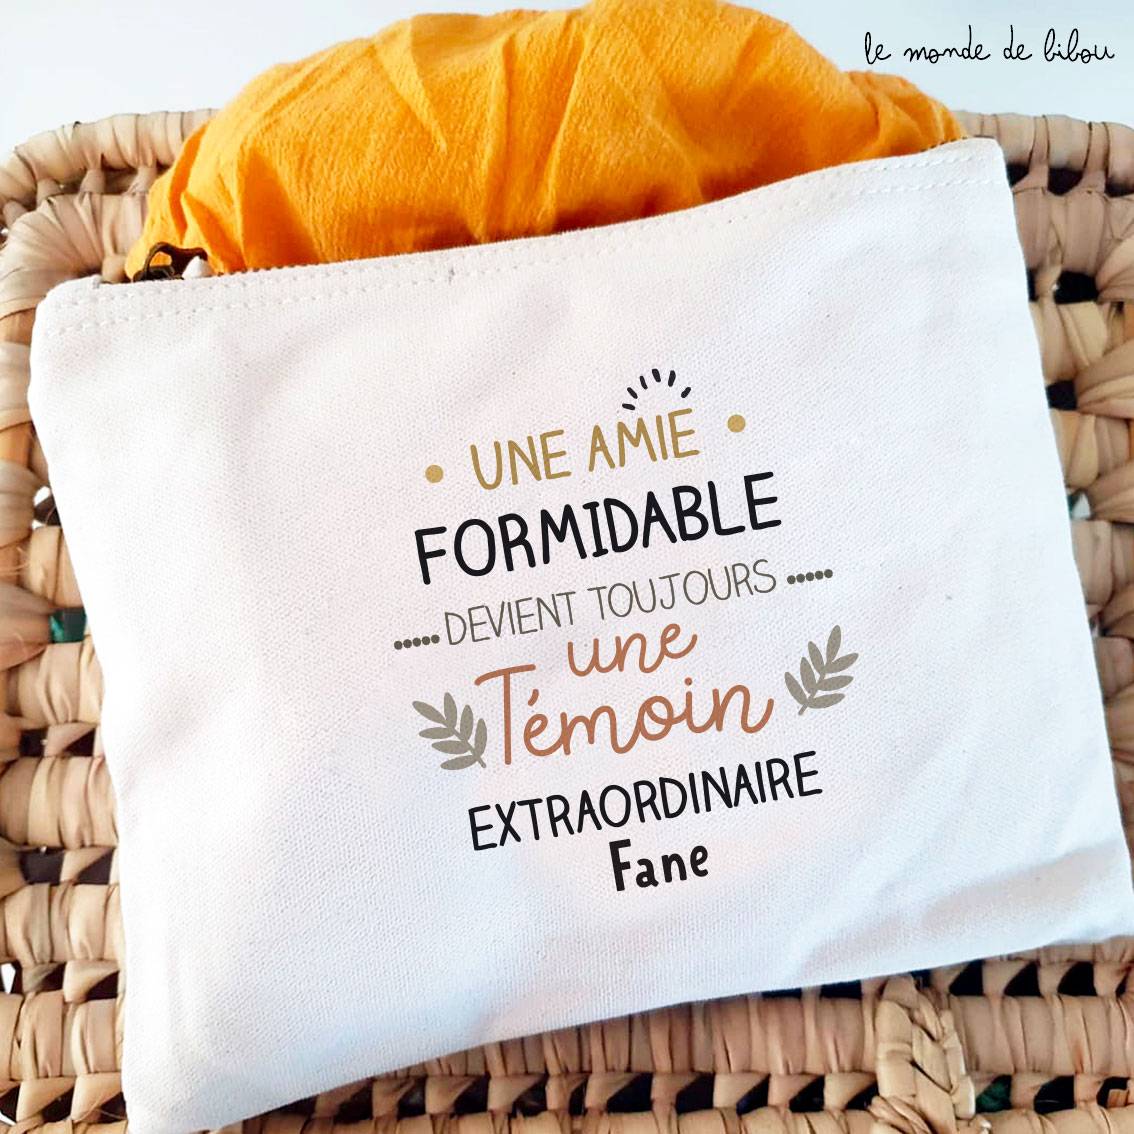 le monde de bibou
UNE AMIE
FORMIDABLE
DEVIENT TOUJOURS
une
Témoin
EXTRAORDINAIRE
Fane